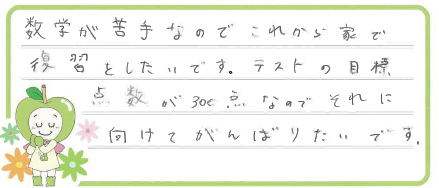 数学が苦手なのでこれから家で
復習をしたいです。テストの目標
点数が300点なのでそれに
向けてがんばりたいです.